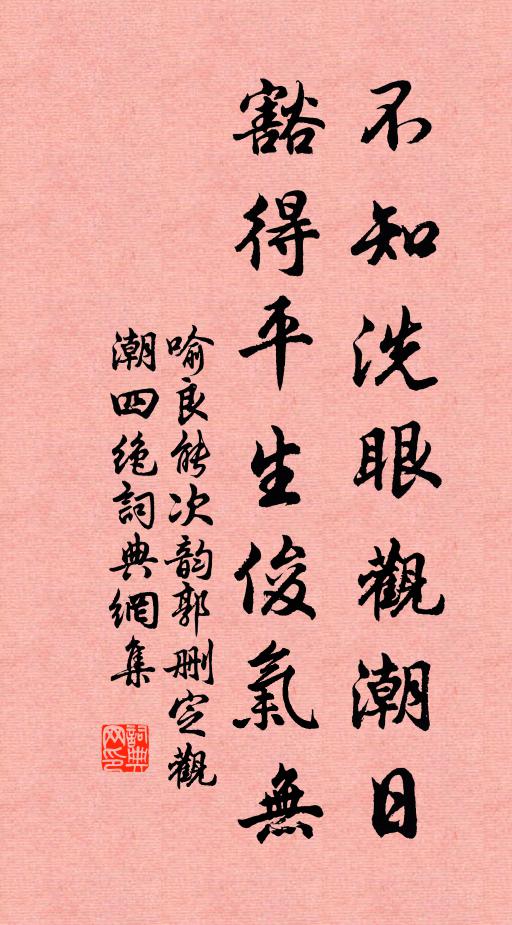 不知洗眼觀潮日
豁得平生俊氣無
喻良能次韵郭删定觀
潮四绝詞典網集
詞典
网印